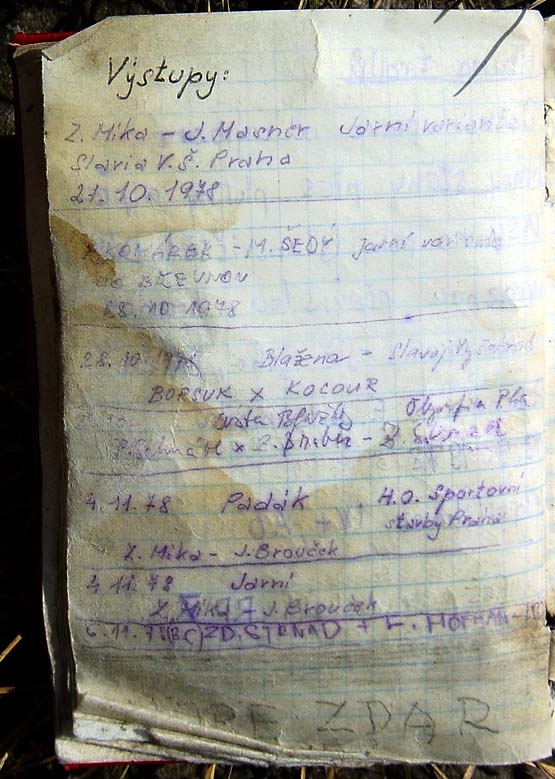 Výstupy:
Z. Mika - J. Masner Jarní varianta
Slavia V.Š. Praha
21.10.1978
KOMÁREK - M. ŠEDÝ jarní varianta
BŘEVNOV
28.10 1978
28.10 1978 Blažena - Slavoj Vyšehrad
BORSUK x KOCOUR
cesta Olympia Plz
4.11.78 Padák H.O. Sportovní
stavby Praha
Z. Mika - J. Brouček
4.11.78 Jarní
Z. Mika - J. Brouček
6.11.78 (BC) ZD. STRNAD + L. HOFMAN
ZDAR